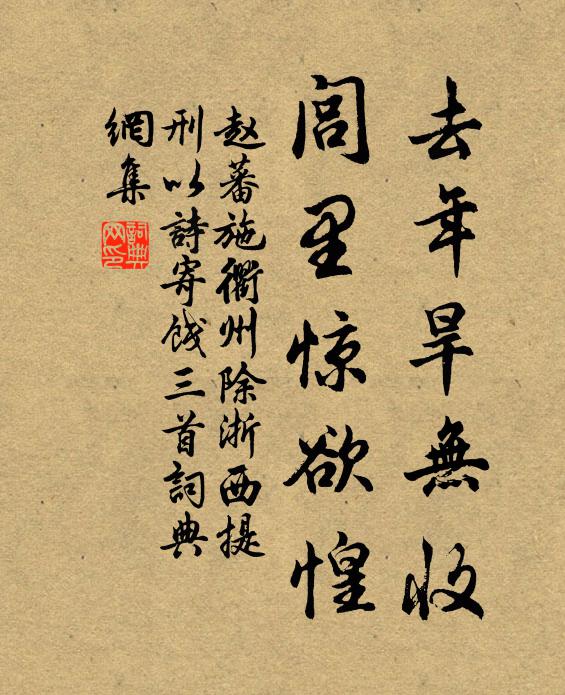 去年旱無收
闾里惊欲惶
赵蕃施衢州除浙西提
刑以詩寄饯三首詞典
網集
詞典
网印